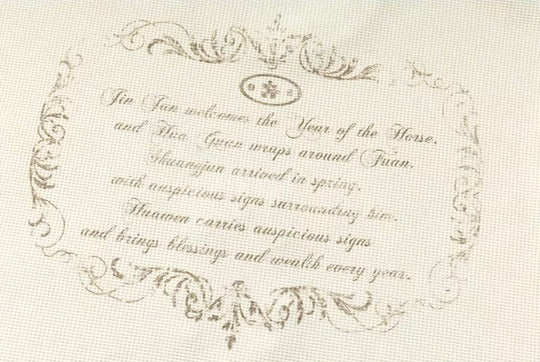 Jin Jun welcomes the Year of the Horse,
and Hua Guen wraps around Juan.
Shuangjun arrived in spring,
with auspicious signs surrounding him.
Huawen carries auspicious signs
and brings blessings and wealth every year.